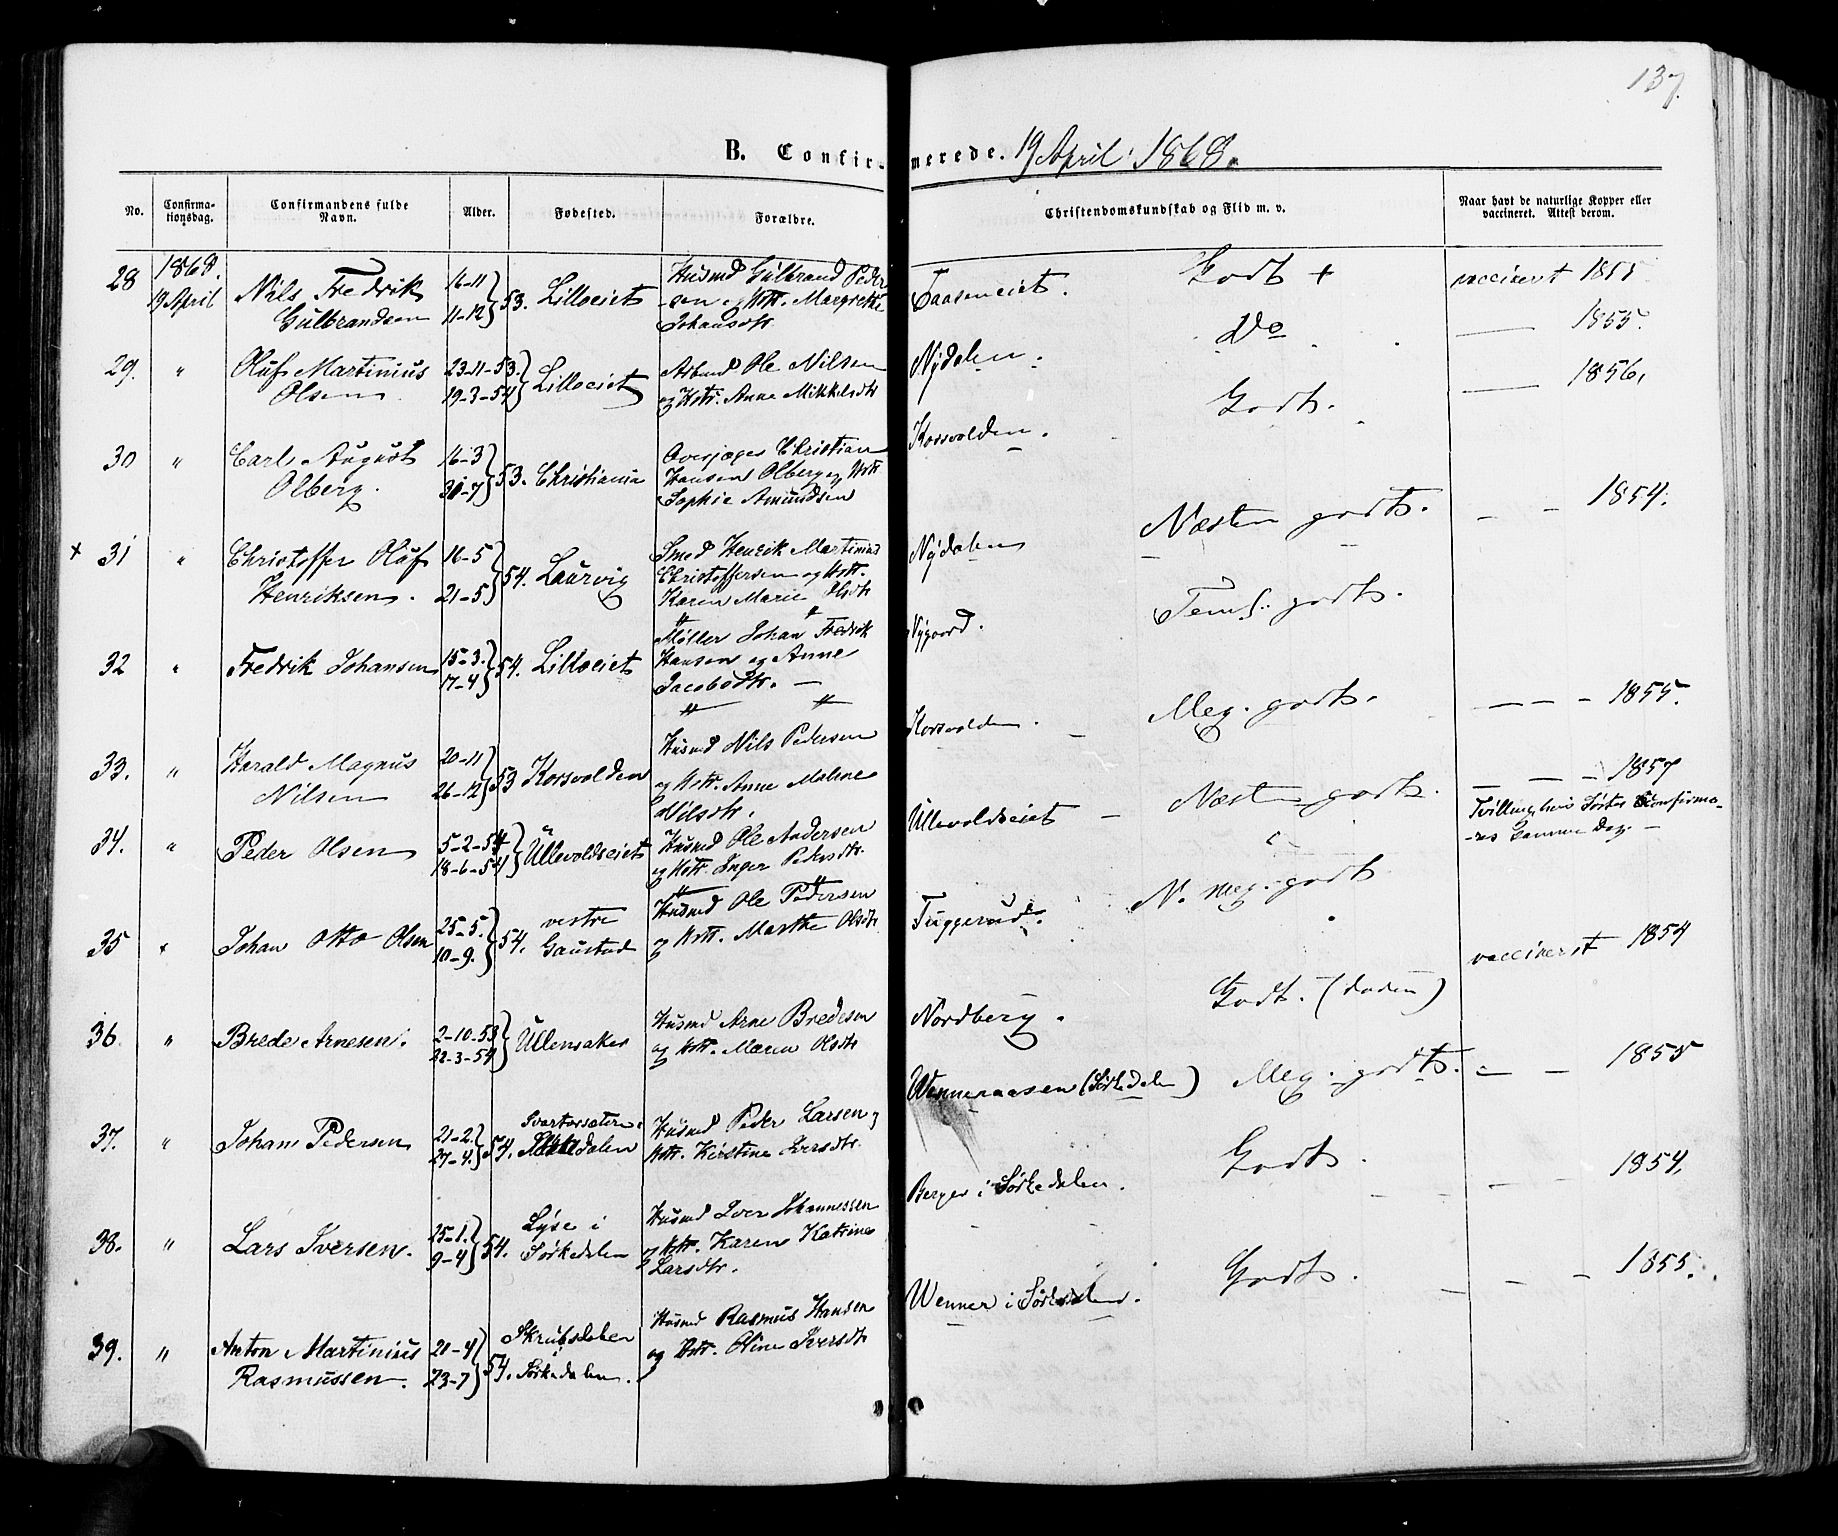 137.
B. Confirmerede. 19 April 1868.
No. Confirmationsdag. Confirmandens fulde Navn. Alder. Fødested. Forældre. Christendomskundskab og Flid m. v. Naar havt de naturlige Kopper eller vaccineret. Attest derom.
28 1868. 19 April Nils Fredrik Gulbrandsen 16-11 11-12 } 53. Lilloeiet Husmd Gulbrand Peder-
-sen og Hstr. Margrethe
Johansdtr.
Taaseneiet. Godt + vaccineret 1855
29. " Oluf Martinius Olsen 23-11-53. 19-3-54 } Lilloeiet Arbmd Ole Nilsen
og Hstr. Anne Mikkelsdtr
Nydalen. Do — 1855.
30 " Carl August Olberg. 16-3 31-7 } 53. Christiania Overjæger Christian
Hansen Olberg og Hstr
Sophie Amundsen
Korsvolden. Godt. — 1856.
+ 31 " Christoffer Oluf Henriksen. 16-5 21-5 } 54. Laurvig Smed Henrik Martinius
Christoffersen og Hstr.
Karen Marie Olsdtr
Nydalen Næsten godt. — — 1854.
32 " Fredrik Johansen 15-3. 17-4 } 54. Lilloeiet Møller Johan Fredrik
Hansen og Anne
Jacobsdtr. —
Nygaard. Teml. godt.
33. " Harald Magnus Nilsen 20-11 26-12 } 53 Korsvolden Husmd Nils Pedersen
og Hstr. Anne Malene
Nilsdtr.
Korsvolden. Meg. godt. — — — 1855.
34. " Peder Olsen 5-2-54 18-6-54 } Ullevoldseiet Husmd Ole Andersen
og Hstr. Inger Pedersdtr.
Ullevoldseiet — Næsten godt. — — — 1857
Tvilling, hvis Søster Confirme-
-res samme Dag. —
35 " Johan Otto Olsen 25-5. 10-9. } 54. vestre Gaustad Husmd Ole Pedersen
og Hstr. Marthe Olsdtr
Tuggerud. N. meg. godt
vaccineret 1854
36. " Brede Arnesen. 2-10-53 22-3-54 } Ullensaker Husmd Arne Bredesen
og Hstr. Maren Olsdtr
Nordberg. Godt. (doden)
37. " Johan Pedersen 21-2. 27-4. } 54. Svartorsæteren i Sørkedalen Husmd Peder Larsen og
Hstr. Kirstine Iversdtr.
Wenneraasen (Sørkedalen) Meg. godt. — — 1855
38. " Lars Iversen. 25-1. 9-4 } 54. Lyse i Sørkedalen Husmd Iver Johannessen
og Hstr. Karen Katrine
Larsdtr.
Berger i Sørkedalen. Godt. — — 1854.
39. " Anton Martinius Rasmussen. 20-4 23-7 } 54. Skrubdalen i Sørkedalen. Husmd Rasmus Hansen
og Hstr. Oline Iversdtr
Wenner i Sørkedalen. Godt. — — 1855.